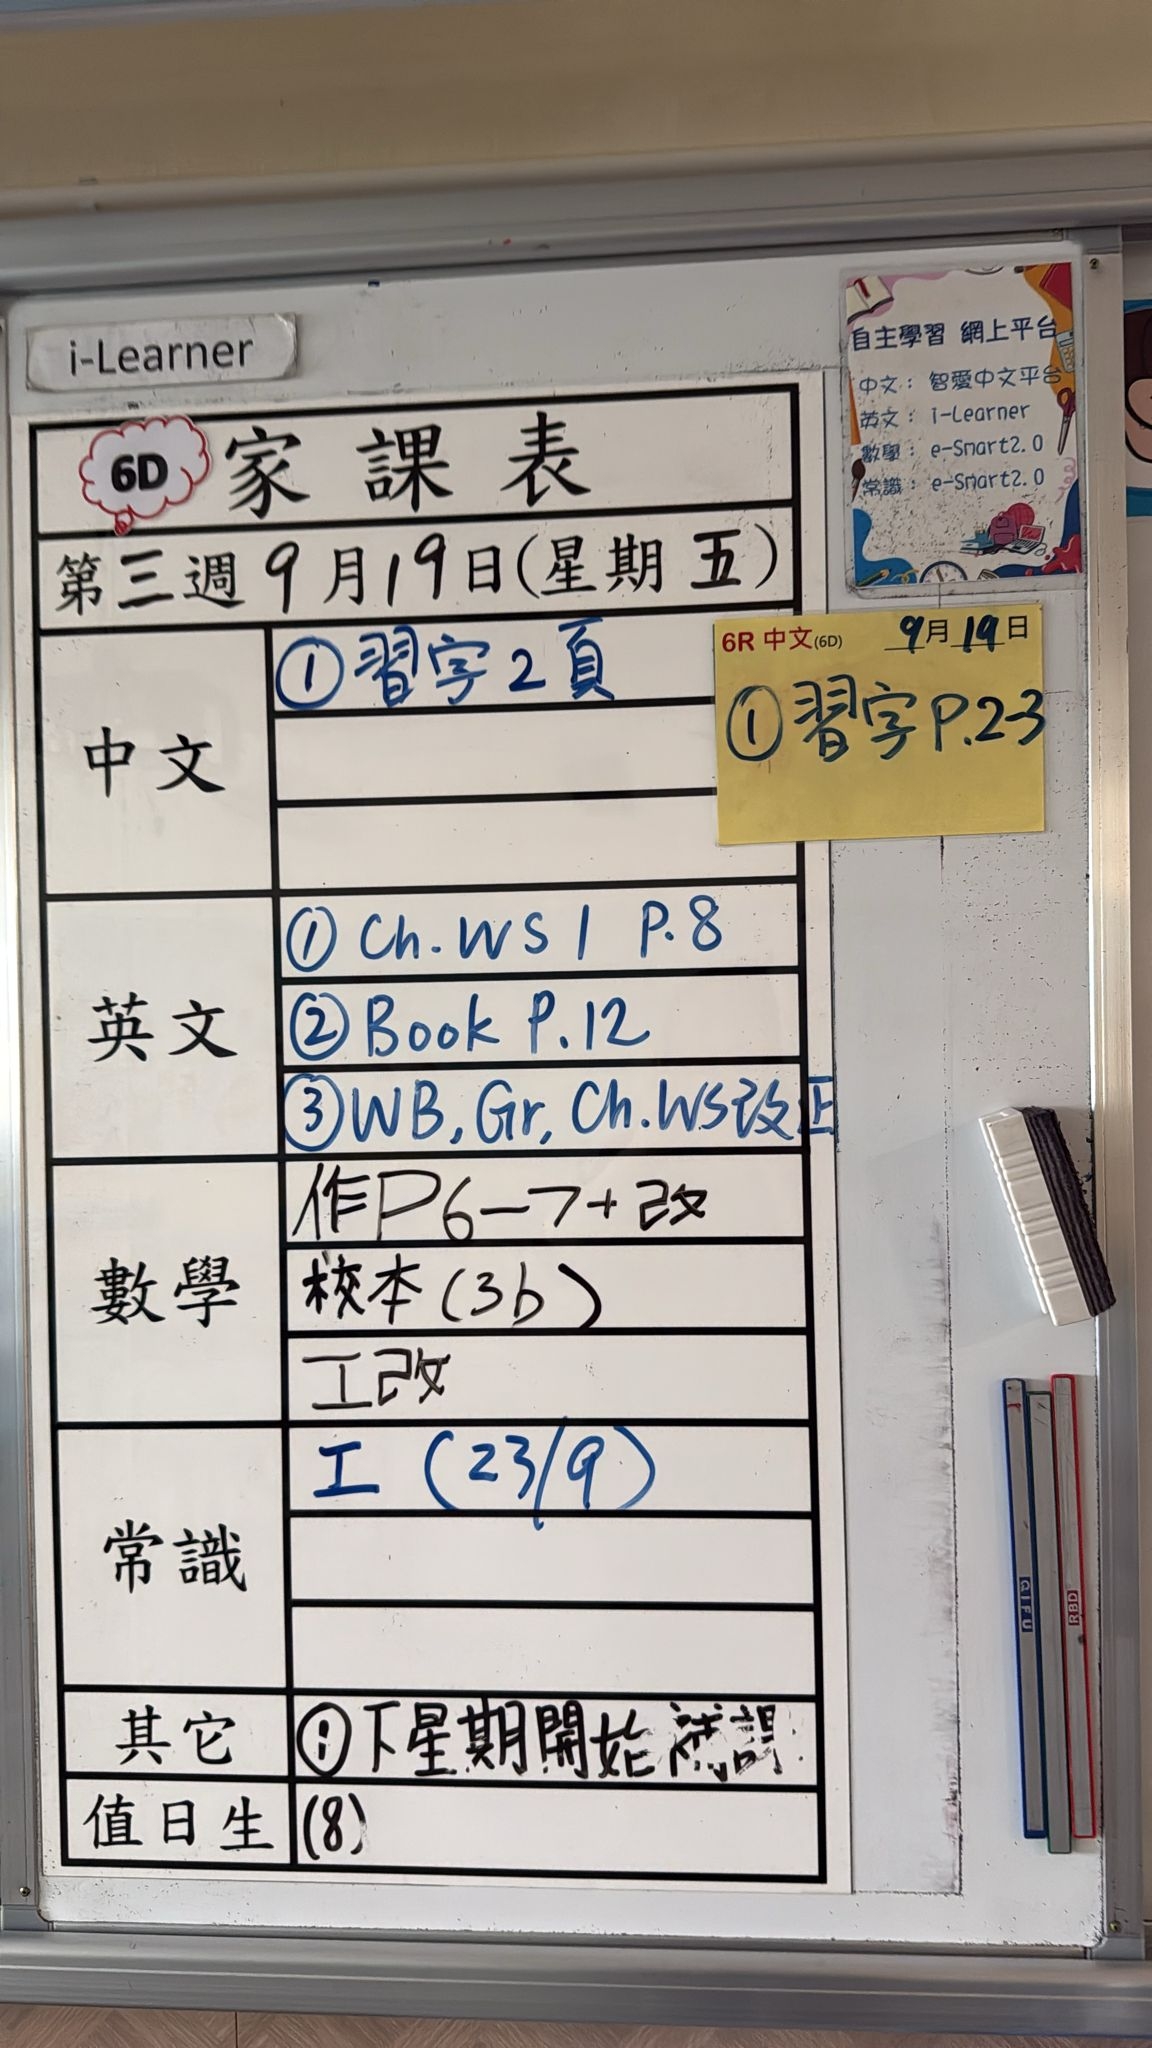 i-Learner
自主學習 網上平台
中文： 智愛中文平台
英文： i-Learner
數學： e-Smart2.0
常識： e-Smart2.0
6D 家課表
第三週9月19日(星期五)
中文
①習字2頁
6R 中文(6D) 9月19日
①習字P.2-3
英文
①Ch.WS1 P.8
②Book P.12
③WB, Gr, Ch.WS改正
數學
作P6-7+改
校本(3b)
工改
常識
工 (23/9)
其它
①下星期開始補課
值日生
(8)
QIFU
RBD